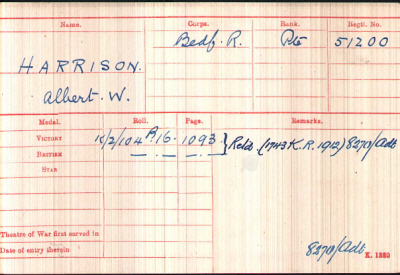 Name. Corps. Rank. Regtl. No.
Bedf. R. Pte 51200
HARRISON.
Albert. W.
Medal. Roll. Page. Remarks.
VICTORY K/2/104 B.16. 1093 } Retd. (1743 K.R. 1912) 8270/Adt
BRITISH — . — . —
STAR
Theatre of War first served in
Date of entry therein
8270/Adt
K. 1380